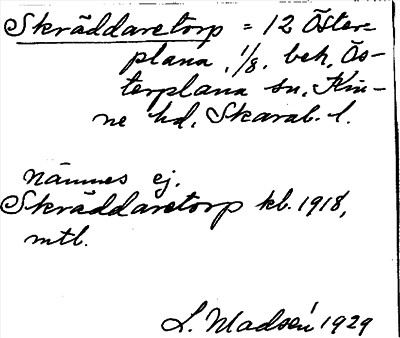 Skräddaretorp = 12 Östere
plana, 1/8. beh. Ös-
terplana sn, Kin-
ne hd. Skarab. l.
nämnes ej.
Skräddaretorp kb. 1918,
mtb.
L. Madsén 1929